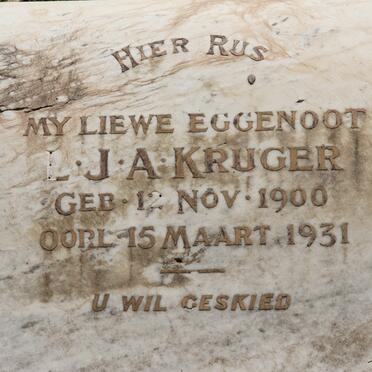 HIER RUS
MY LIEWE EGGENOOT
L·J·A·KRUGER
GEB·12 NOV·1900
OORL·15 MAART·1931
U WIL GESKIED